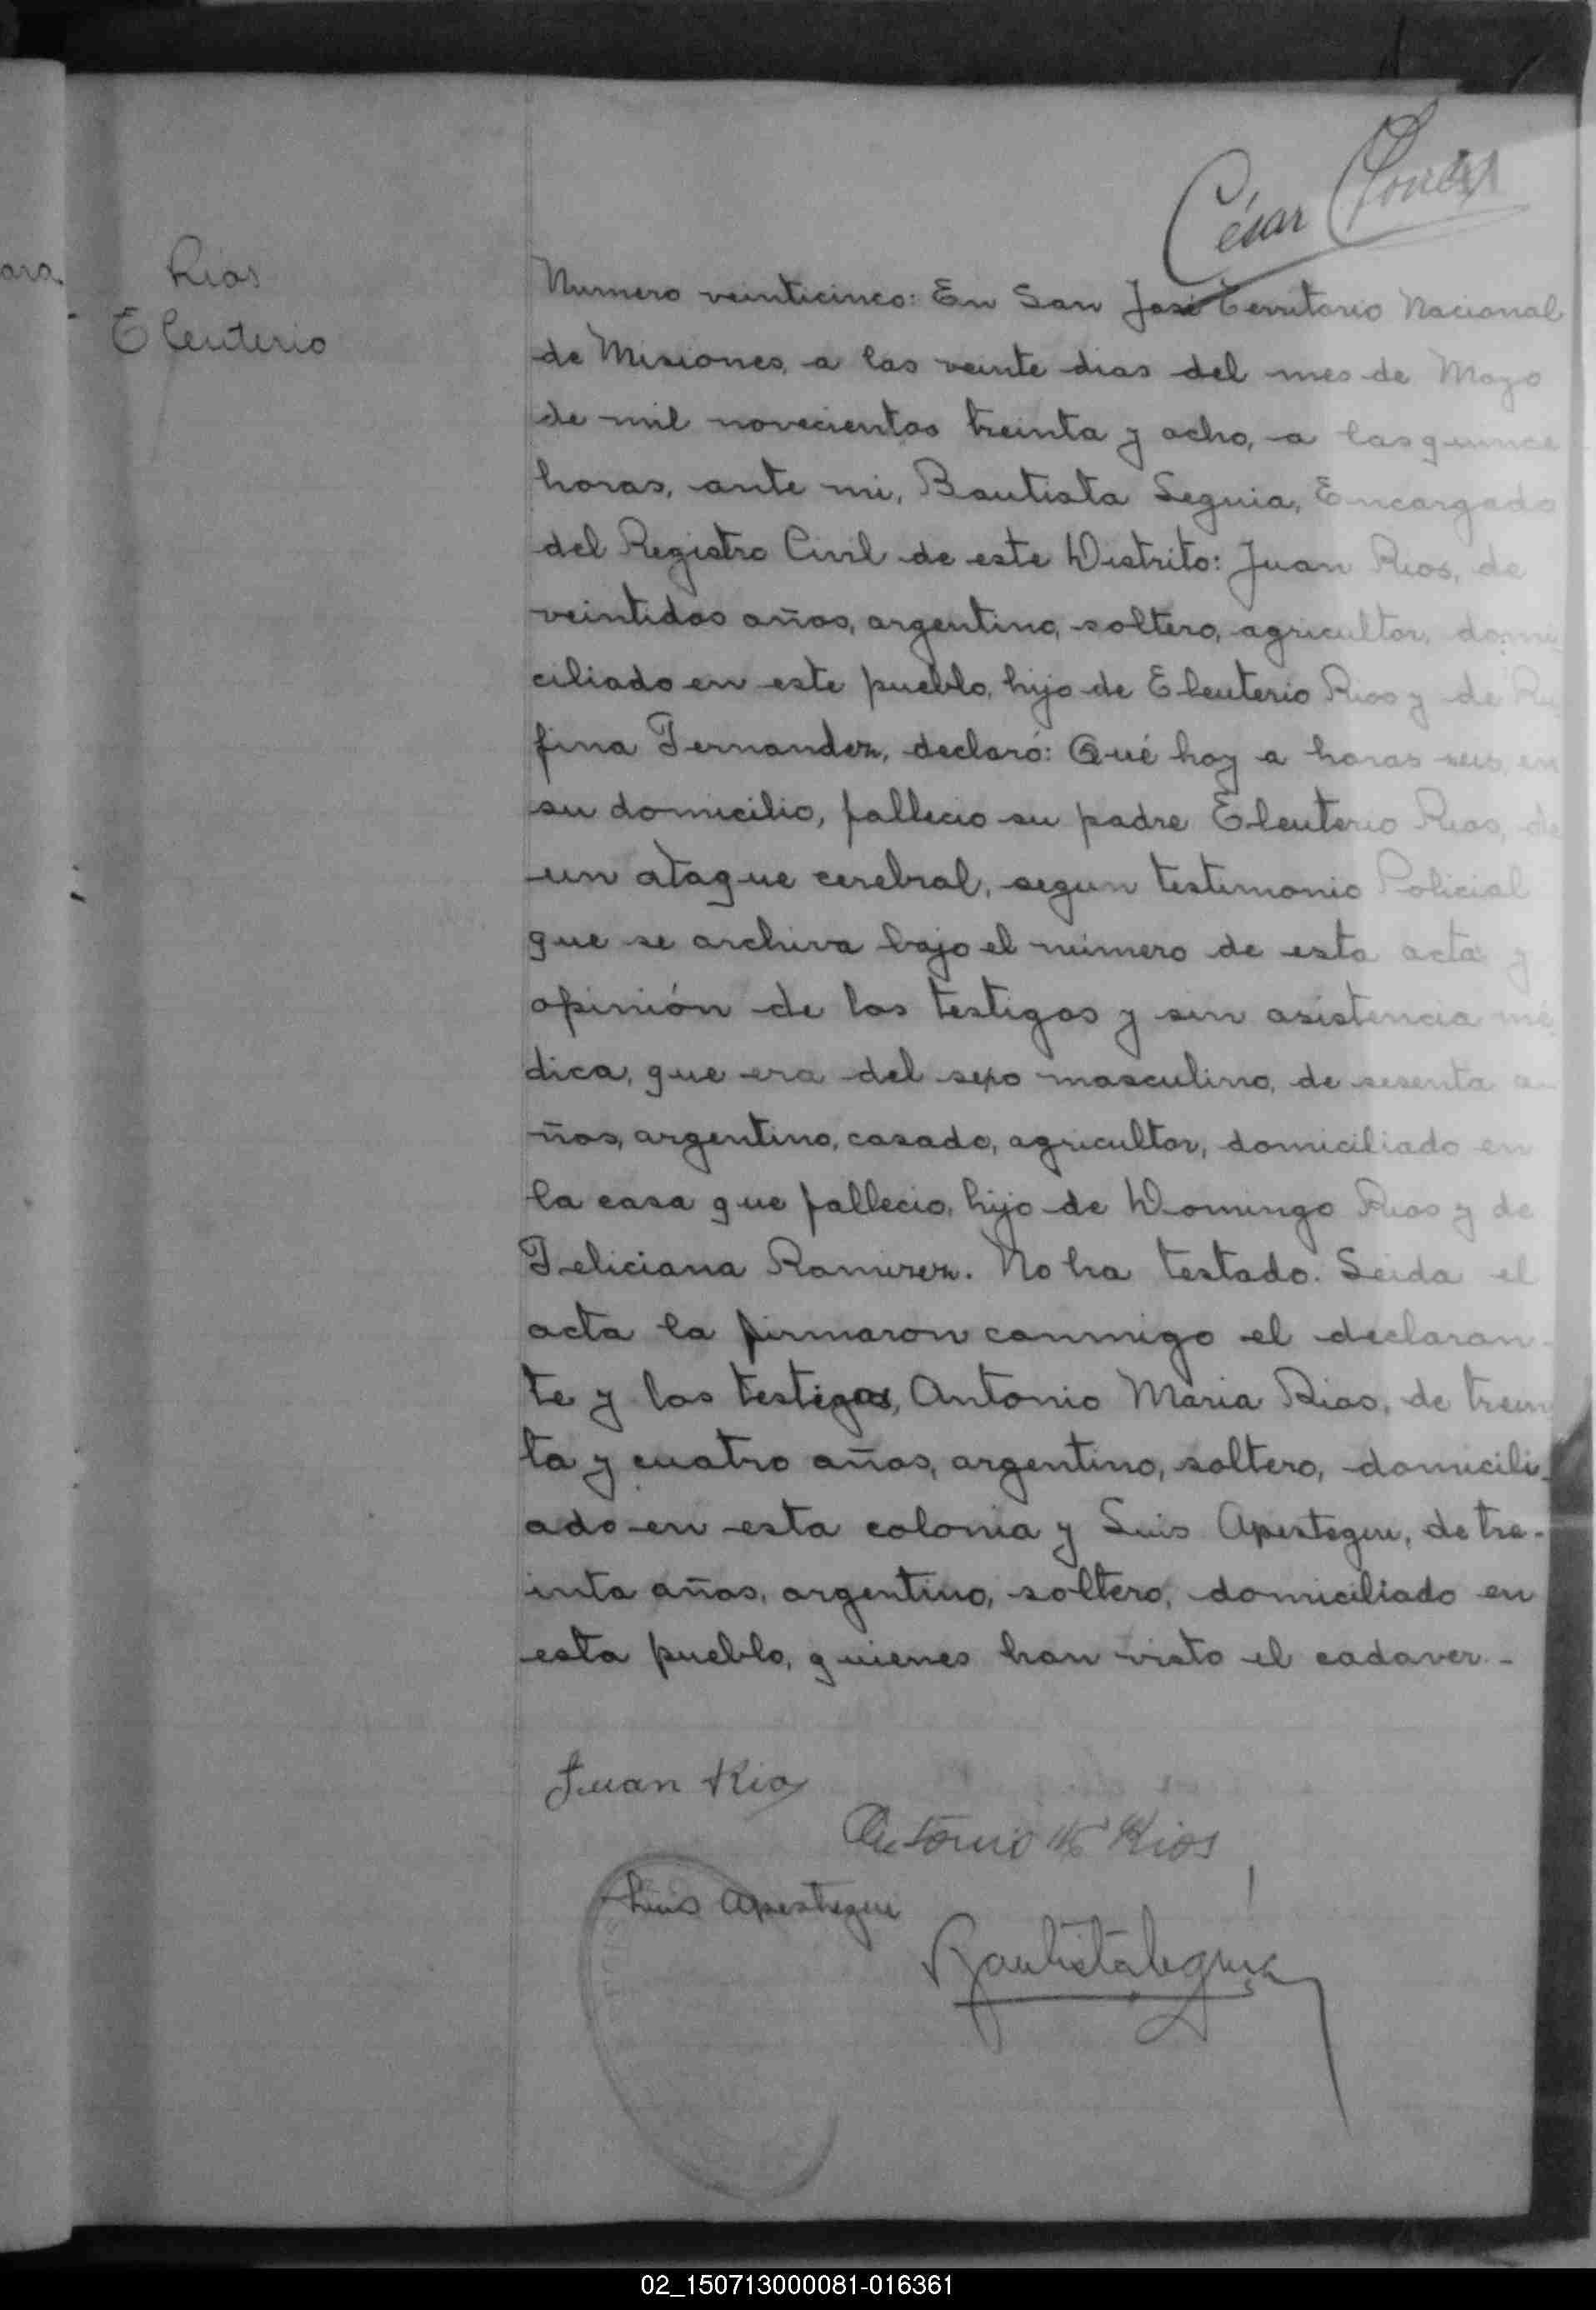 César
ara
Rios
Eleuterio
Numero veinticinco: En San José Territorio Nacional
de Misiones, a las veinte dias del mes de Mayo
de mil novecientos treinta y ocho, a las quince
horas, ante mi, Bautista Seguia, Encargado
del Registro Civil de este Distrito: Juan Rios, de
veintidos años, argentino, soltero, agricultor, domi
ciliado en este pueblo, hijo de Eleuterio Rios y de Ru
fina Fernandez, declaró: Qué hoy a horas seis, en
su domicilio, fallecio su padre Eleuterio Rios, de
un ataque cerebral, segun testimonio Policial
que se archiva bajo el número de esta acta y
opinión de los testigos y sin asistencia mé
dica, que era del sexo masculino, de sesenta a-
ños, argentino, casado, agricultor, domiciliado en
la casa que fallecio, hijo de Domingo Rios y de
Feliciana Ramirez. No ha testado. Leida el
acta la firmaron conmigo el declaran-
te y los testigos, Antonio Maria Rios, de trein
ta y cuatro años, argentino, soltero, domicili-
ado en esta colonia y Luis Apestegui, de tre-
inta años, argentino, soltero, domiciliado en
esta pueblo, quienes han visto el cadaver.-
Juan Rios
Antonio M Rios
Luis Apestegui
Bautista Seguia
02_150713000081-016361